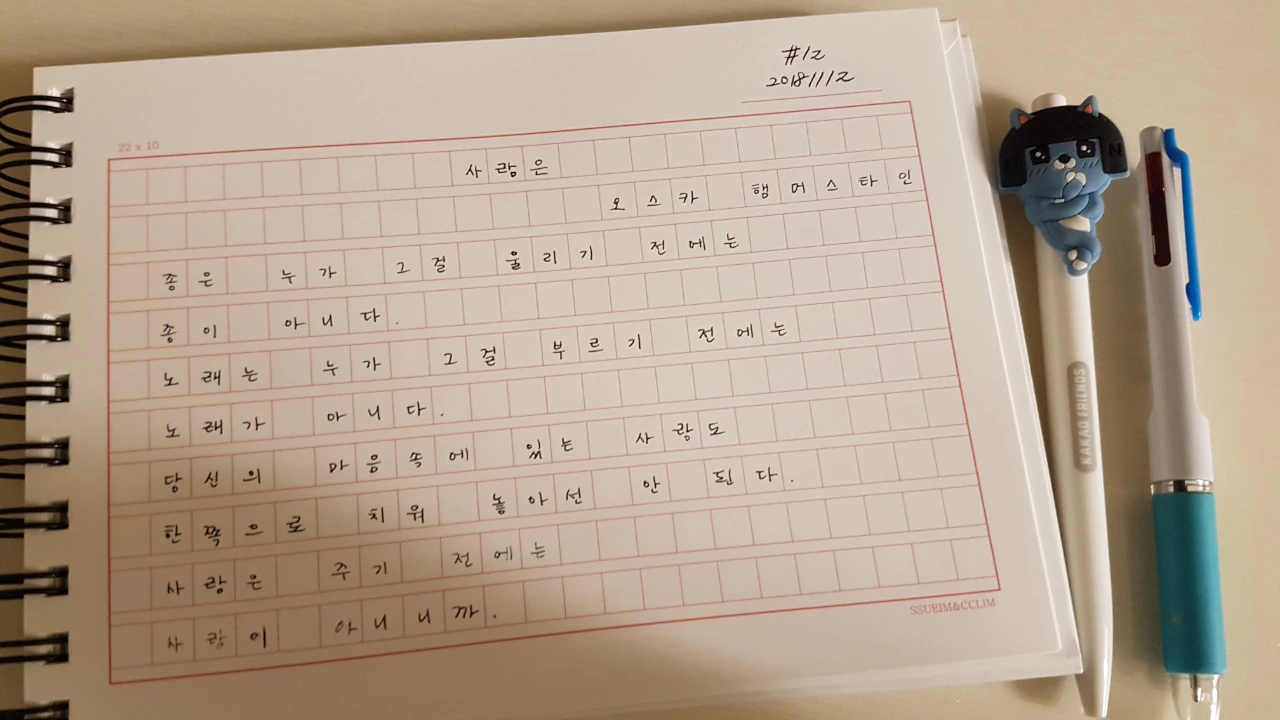 #12
20181112
22 x 10
사람은
오스카 햄머스타인
종은 누가 그걸 울리기 전에는
종이 아니다.
노래는 누가 그걸 부르기 전에는
노래가 아니다.
당신의 마음속에 있는 사랑도
한쪽으로 치워 놓아선 안 된다.
사랑은 주기 전에는
사랑이 아니니까.
SSUEIM&CCLIM
KAKAO FRIENDS
N